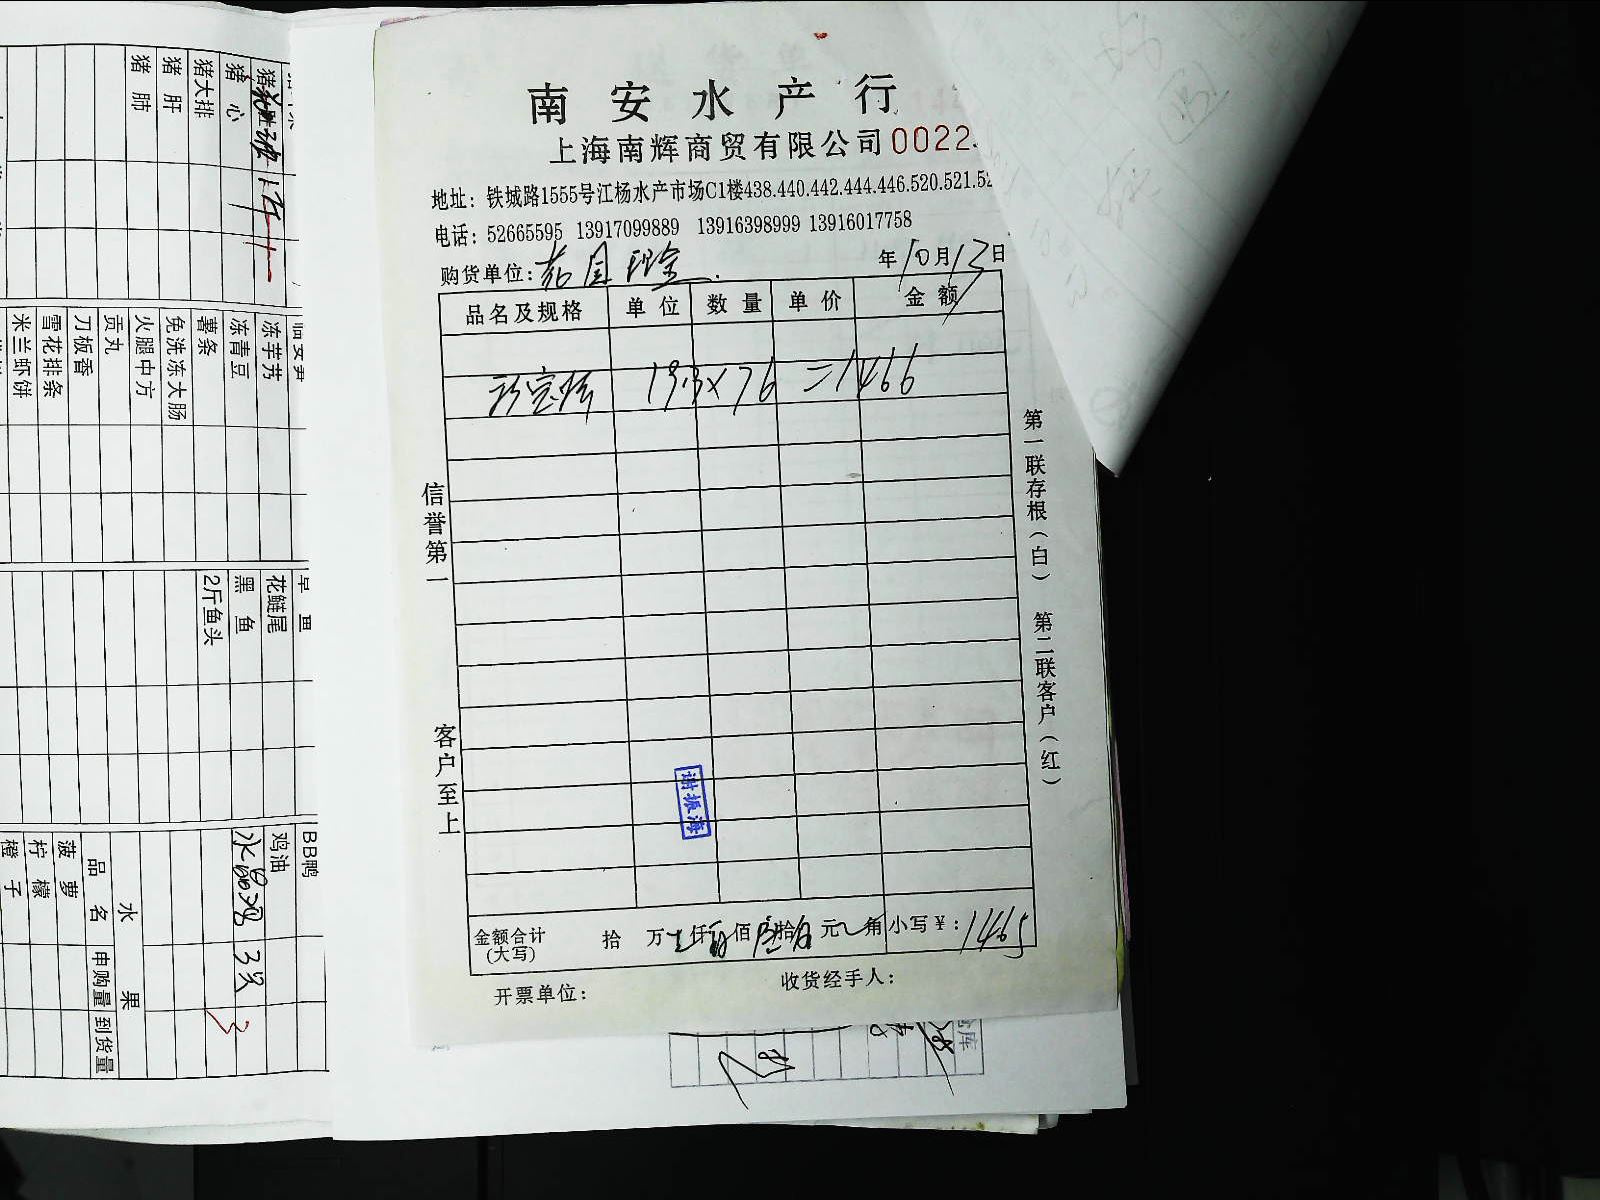 南安水产行
上海南辉商贸有限公司 0022
地址：铁城路1555号江杨水产市场C1楼438.440.442.444.446.520.521.52
电话：52665595 13917099889 13916398999 13916017758
购货单位：
年10月13日
品名及规格 单位 数量 单价 金额
珍宝蟹 19.3×76 =1466
金额合计(大写) 拾 万 仟 佰 拾 元 角 小写￥：1465
开票单位： 收货经手人：
信誉第一 客户至上
第一联存根(白) 第二联客户(红)
谢振海
猪心
猪大排
猪肝
猪肺
冻芋艿
冻青豆
薯条
免洗冻大肠
火腿中方
贡丸
刀板香
雪花排条
米兰虾饼
花鲢尾
黑鱼
2斤鱼头
BB鸭
鸡油
水晶鸡 3只
3
水果
品名 申购量 到货量
菠萝
柠檬
橙子